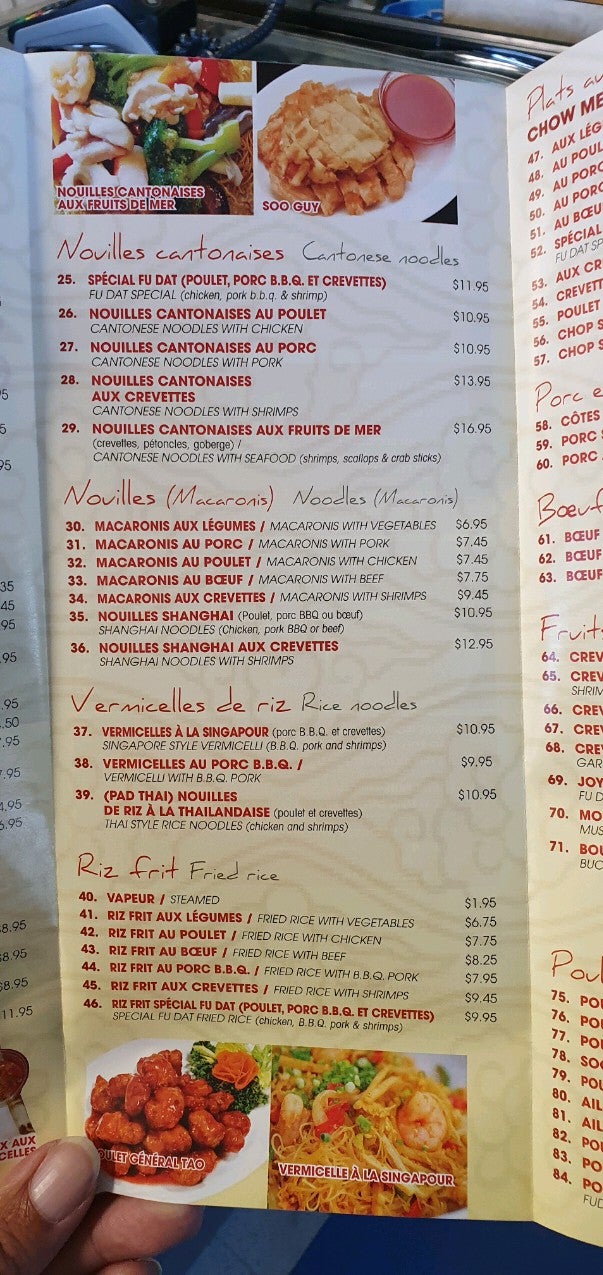 NOUILLES CANTONAISES
AUX FRUITS DE MER
SOO GUY
Nouilles cantonaises Cantonese noodles
25. SPÉCIAL FU DAT (POULET, PORC B.B.Q. ET CREVETTES) $11.95
FU DAT SPECIAL (chicken, pork b.b.q. & shrimp)
26. NOUILLES CANTONAISES AU POULET $10.95
CANTONESE NOODLES WITH CHICKEN
27. NOUILLES CANTONAISES AU PORC $10.95
CANTONESE NOODLES WITH PORK
28. NOUILLES CANTONAISES $13.95
AUX CREVETTES
CANTONESE NOODLES WITH SHRIMPS
29. NOUILLES CANTONAISES AUX FRUITS DE MER $16.95
(crevettes, pétoncles, goberge) /
CANTONESE NOODLES WITH SEAFOOD (shrimps, scallops & crab sticks)
Nouilles (Macaronis) Noodles (Macaronis)
30. MACARONIS AUX LÉGUMES / MACARONIS WITH VEGETABLES $6.95
31. MACARONIS AU PORC / MACARONIS WITH PORK $7.45
32. MACARONIS AU POULET / MACARONIS WITH CHICKEN $7.45
33. MACARONIS AU BŒUF / MACARONIS WITH BEEF $7.75
34. MACARONIS AUX CREVETTES / MACARONIS WITH SHRIMPS $9.45
35. NOUILLES SHANGHAI (Poulet, porc BBQ ou bœuf) $10.95
SHANGHAI NOODLES (Chicken, pork BBQ or beef)
36. NOUILLES SHANGHAI AUX CREVETTES $12.95
SHANGHAI NOODLES WITH SHRIMPS
Vermicelles de riz Rice noodles
37. VERMICELLES À LA SINGAPOUR (porc B.B.Q. et crevettes) $10.95
SINGAPORE STYLE VERMICELLI (B.B.Q. pork and shrimps)
38. VERMICELLES AU PORC B.B.Q. / $9.95
VERMICELLI WITH B.B.Q. PORK
39. (PAD THAI) NOUILLES $10.95
DE RIZ À LA THAILANDAISE (poulet et crevettes)
THAI STYLE RICE NOODLES (chicken and shrimps)
Riz frit Fried rice
40. VAPEUR / STEAMED $1.95
41. RIZ FRIT AUX LÉGUMES / FRIED RICE WITH VEGETABLES $6.75
42. RIZ FRIT AU POULET / FRIED RICE WITH CHICKEN $7.75
43. RIZ FRIT AU BŒUF / FRIED RICE WITH BEEF $8.25
44. RIZ FRIT AU PORC B.B.Q. / FRIED RICE WITH B.B.Q. PORK $7.95
45. RIZ FRIT AUX CREVETTES / FRIED RICE WITH SHRIMPS $9.45
46. RIZ FRIT SPÉCIAL FU DAT (POULET, PORC B.B.Q. ET CREVETTES) $9.95
SPECIAL FU DAT FRIED RICE (chicken, B.B.Q. pork & shrimps)
POULET GÉNÉRAL TAO
VERMICELLE À LA SINGAPOUR
Plats au
CHOW ME
47. AUX LÉG
48. AU POUL
49. AU PORC
50. AU PORC
51. AU BŒU
52. SPÉCIAL
FU DAT SP
53. AUX CR
54. CREVETT
55. POULET
56. CHOP S
57. CHOP S
Porc e
58. CÔTES
59. PORC
60. PORC
Bœuf
61. BŒUF
62. BŒUF
63. BŒUF
Fruits
64. CREV
65. CREV
SHRIM
66. CREV
67. CREV
68. CREV
GAR
69. JOY
FU D
70. MO
MUS
71. BOU
BUC
Poul
75. POU
76. PO
77. POU
78. SOO
79. POU
80. AIL
81. AIL
82. PO
83. PO
84. PO
FUD